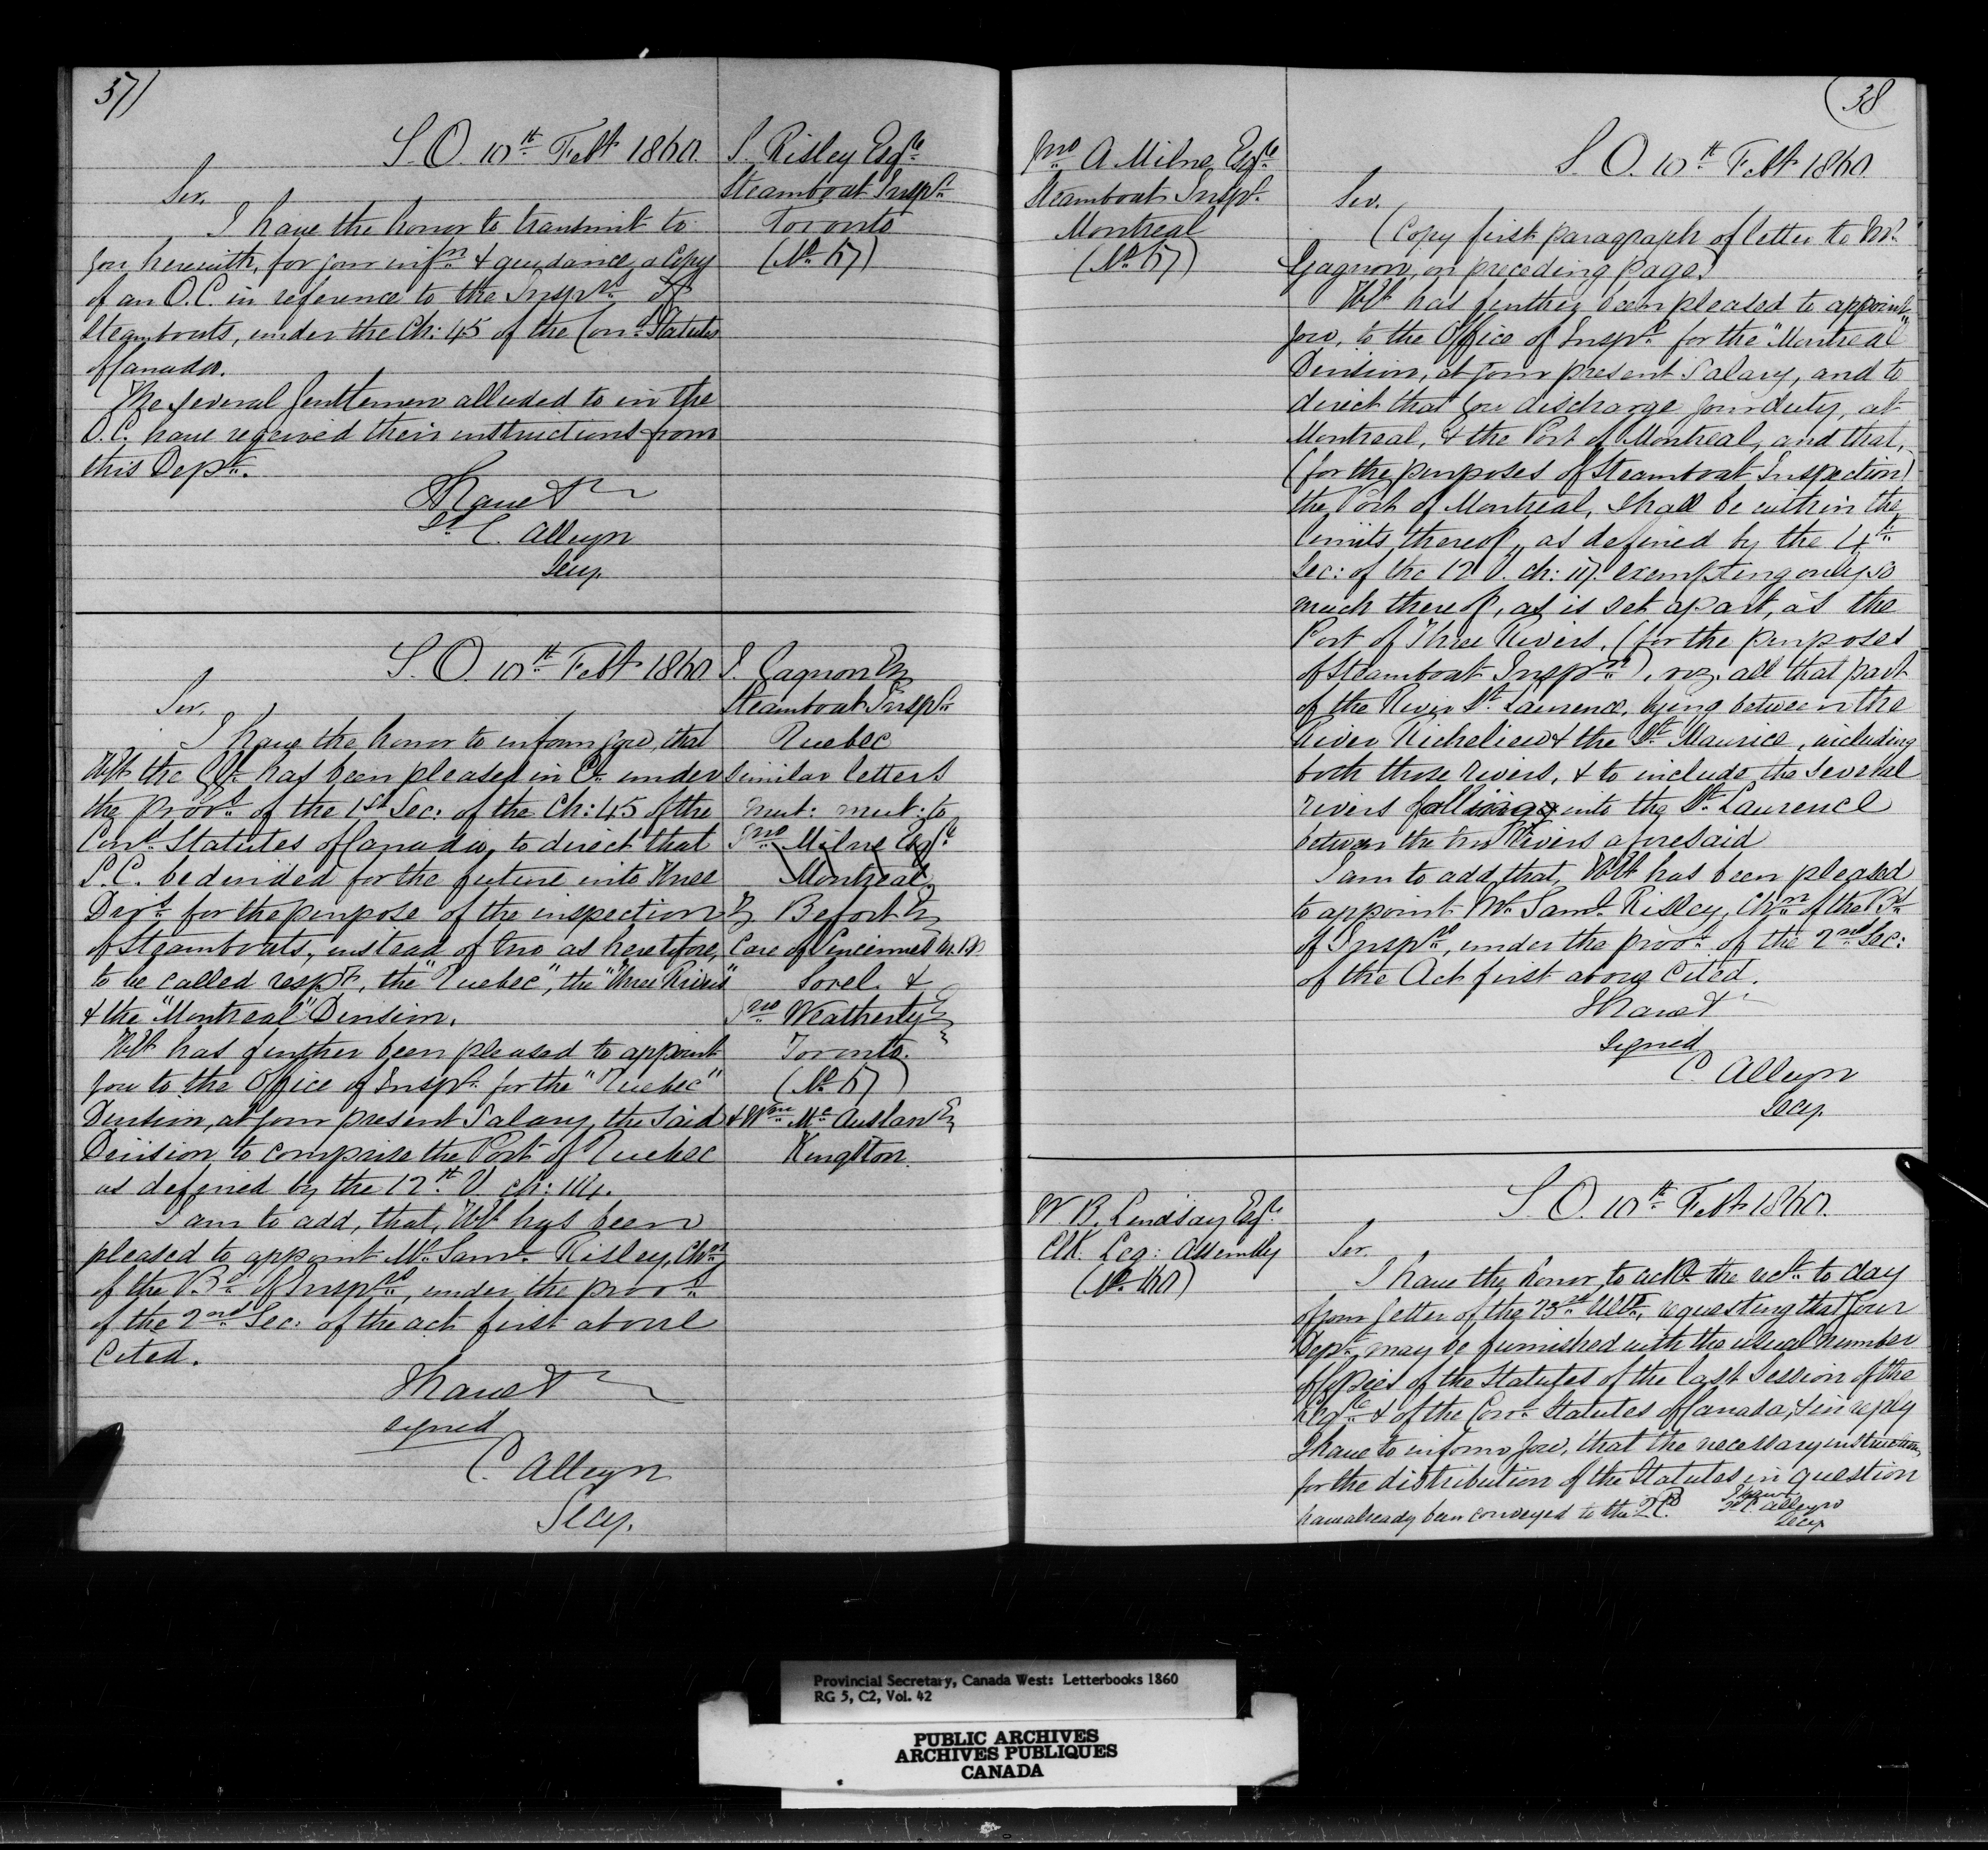 37)
S. O. 10th Feby 1860.
Sir,
I have the honor to transmit to
you herewith, for your infn & guidance a Copy
of an O.C. in reference to the Inspn of
Steamboats, under the Ch: 45 of the Cond Statutes
of Canada.
The several Gentlemen alluded to in the
O.C. have received their instructions from
this Dept.
I have &
Sd C. Alleyn
Secy.
S. Risley Esqre
Steamboat Inspr
Toronto
(No 57)
S. O. 10th Feby 1860
Sir,
I have the honor to inform you, that
the has been pleased in Cl under
the provs of the 1st Sec: of the Ch: 45 of the
Cond Statutes of Canada, to direct that
L.C. be divided for the future into Three
Divs for the purpose of the inspection
of Steamboats, instead of two as heretofore,
to be called respy, the "Quebec", the "Three Rivers"
& the "Montreal" Division.
has further been pleased to appoint
you to the Office of Inspr for the "Quebec"
Division, at your present Salary, the said
Division to comprise the Port of Quebec
as defined by the 12th V. ch: 114.
I am to add, that, has been
pleased to appoint Mr Saml Risley, Chn
of the Bd of Insprs, under the provs
of the 2nd Sec: of the act first above
Cited.
I have &
signed
C. Alleyn
Secy.
Gagnon Es
Steamboat Inspr
Quebec
Similar letters
mut: mut: to
Jno Milne Esqre
Montreal,
Befort Es
Care of
Sorel &
Jno Weatherly Es
Toronto.
(No 57)
& Wm Mc Auslan Es
Kingston.
(38
Jno A Milne Esqre
Steamboat Inspr
Montreal
(No 57)
S. O. 10th Feby 1860
Sir,
(Copy first paragraph of letter to Mr
Gagnon, on preceding page.)
has further been pleased to appoint
you, to the Office of Inspr for the "Montreal"
Division, at your present Salary, and to
direct that you discharge your duty, at
Montreal, & the Port of Montreal, and that,
(for the purposes of Steamboat Inspection)
the Port of Montreal, shall be within the
limits thereof, as defined by the 4th
Sec: of the 12 V. ch: 117. exempting only so
much thereof, as is set apart, as the
Port of Three Rivers, (for the purposes
of Steamboat Inspn), viz. all that part
of the River St. Laurence, lying between the
River Richelieu & the St Maurice, including
both those rivers, & to include the several
rivers falling into the St. Laurence
between the two Rivers aforesaid
I am to add that, has been pleased
to appoint Mr Saml Risley, Chn of the Bd
of Insprs, under the provs of the 2nd Sec:
of the Act first above Cited.
I have &
signed
C. Alleyn
Secy.
W. B. Lindsay Esqre
Clk. Leg: Assembly
S. O. 10th Feby 1860.
Sir
I have the honor to ackn the rect to day
of your letter of the 23rd Ulto, requesting that your
Dept may be furnished with the usual number
of Copies of the Statutes of the last Session of the
Legre & of the Cond Statutes of Canada, & in reply
I have to inform you, that the necessary instructions
for the distribution of the Statutes in question
have already been conveyed to the Q.P.
I have
Sd C. Alleyn
Secy
Provincial Secretary, Canada West: Letterbooks 1860
RG 5, C2, Vol. 42
PUBLIC ARCHIVES
ARCHIVES PUBLIQUES
CANADA